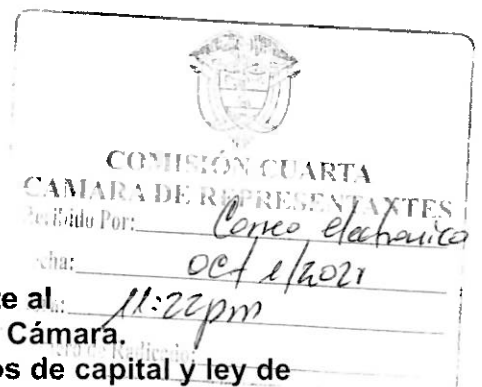 COMISIÓN CUARTA
CAMARA DE REPRESENTANTES
Recibido Por: Correo electronico
Fecha: Oct 1/2021
te al
Hora: 11:22pm
Cámara.
de Radicado:
os de capital y ley de